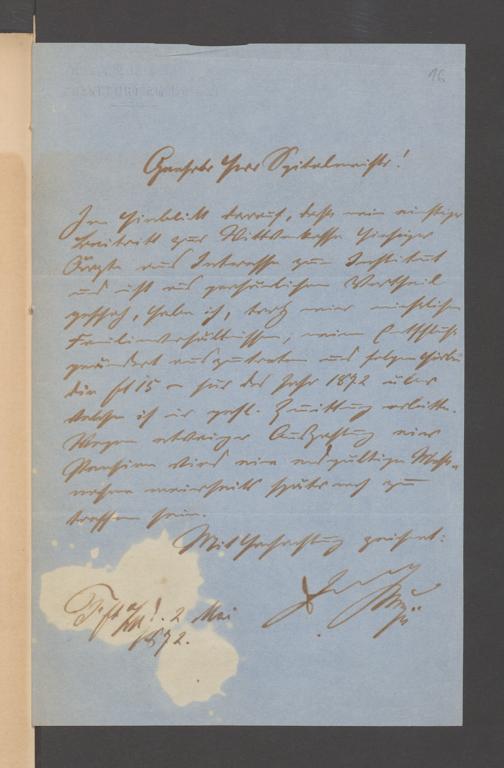 16
Geehrter Herr Spitalmeister!
Im Hinblick darauf, daß mein einstiger
Beitritt zur Wittwenkasse hiesiger
Ärzte aus Interesse zum Institut
und nicht aus persönlichem Vortheil
geschah, habe ich, trotz meiner
Familienverhältnissen, meinen Entschluß
geändert auszutreten und folgen hiebei
die fr 15 – für das Jahr 1872 über
welche ich mir gefl. Quittung erbitte.
Wegen etwaiger Auszahlung einer
Pension wird eine endgültige Maß-
nahme meinerseits später noch zu
treffen sein.
Mit Hochachtung zeichnet:
2 Mai
1872.